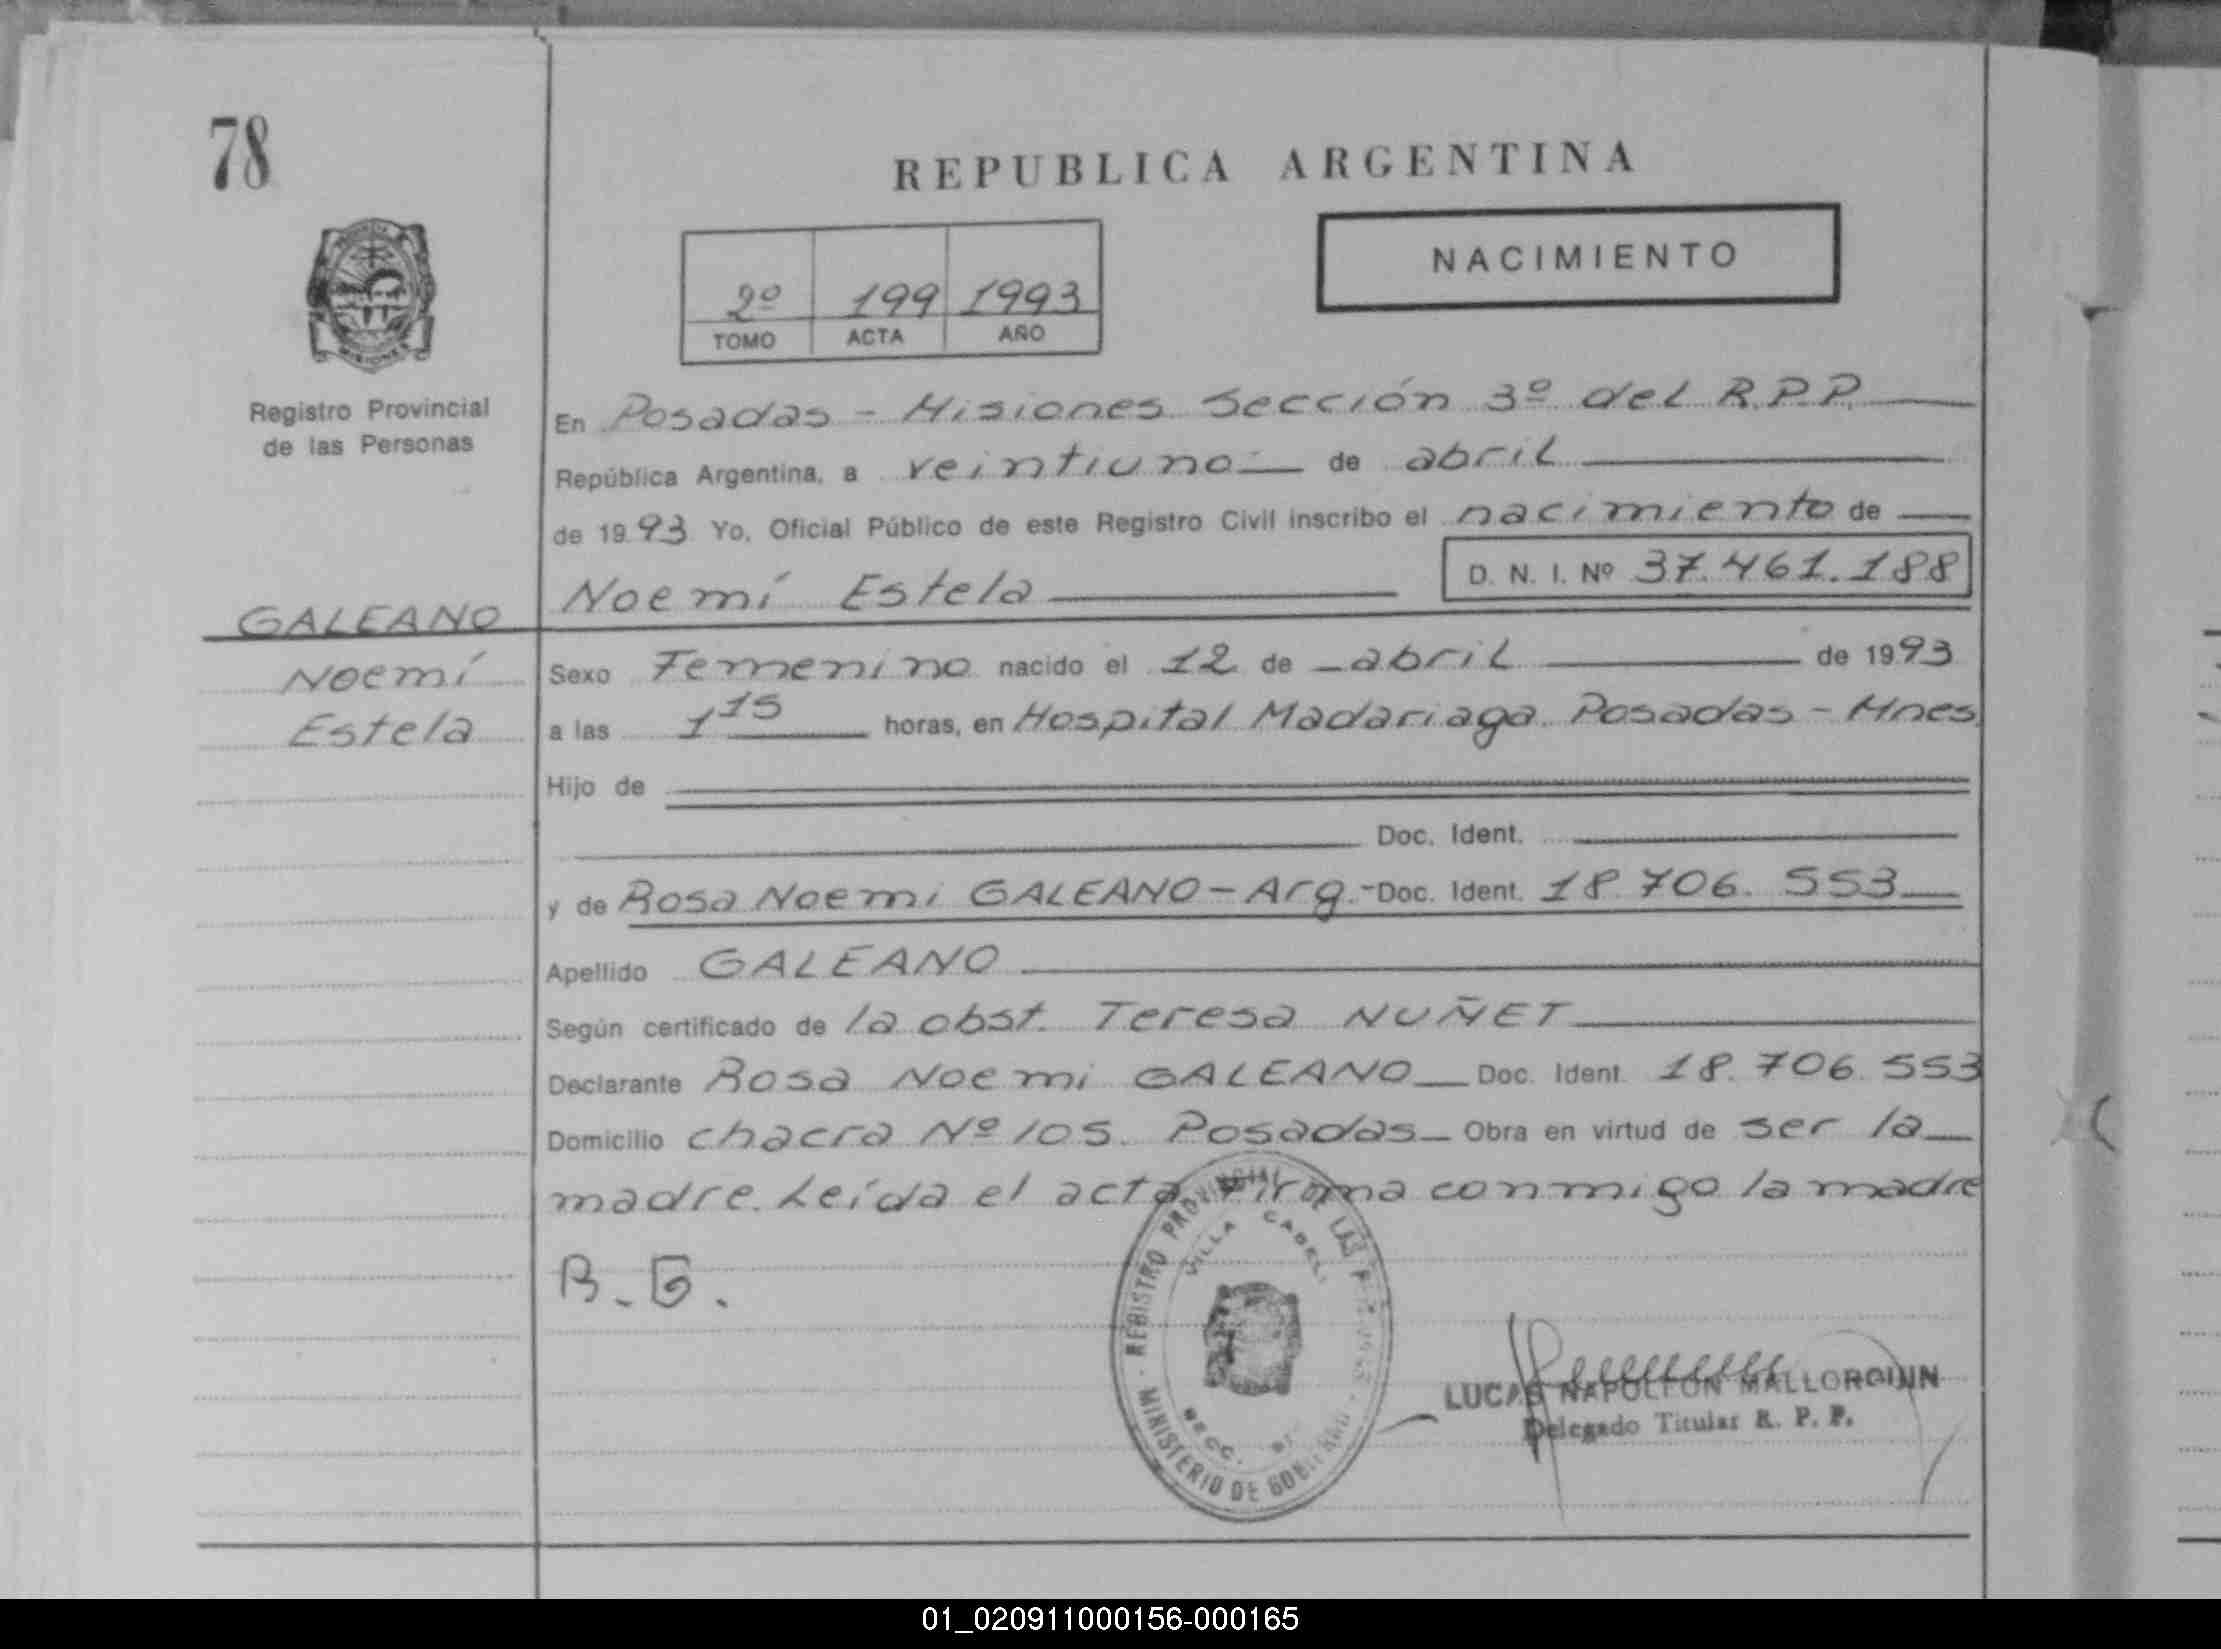 78
REPUBLICA ARGENTINA
NACIMIENTO
2º 199 1993
TOMO ACTA AÑO
Registro Provincial
de las Personas
En Posadas - Misiones Sección 3º del R.P.P.
República Argentina, a veintiuno de abril
de 1993 Yo, Oficial Público de este Registro Civil inscribo el nacimiento de
D. N. I. Nº 37.461.188
Noemí Estela
GALEANO
Noemí
Estela
Sexo Femenino nacido el 12 de abril de 1993
a las 1 15 horas, en Hospital Madariaga. Posadas - Mnes
Hijo de
Doc. Ident.
y de Rosa Noemi GALEANO - Arg.- Doc. Ident. 18.706.553
Apellido GALEANO
Según certificado de la obst. Teresa NUÑET
Declarante Rosa Noemi GALEANO Doc. Ident. 18.706.553
Domicilio chacra Nº 105. Posadas Obra en virtud de ser la
madre. Leída el acta Firma conmigo la madre
R.G.
REGISTRO PROVINCIAL DE LAS
VILLA
SECC.
MINISTERIO DE GOBIERNO
LUCAS NAPOLEON MALLORQUIN
Delegado Titular R. P. P.
01_020911000156-000165